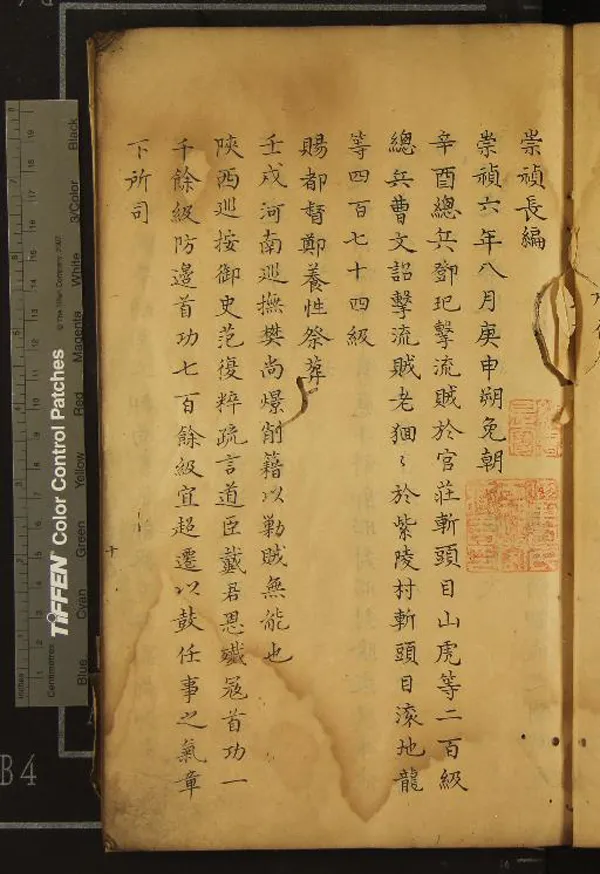 崇禎長編
崇禎六年八月庚申朔免朝
辛酉總兵鄧玘擊流賊於官莊斬頭目山虎等二百級
總兵曹文詔擊流賊老狪〻於紫陵村斬頭目滚地龍
等四百七十四級
賜都督鄭養性祭葬
壬戌河南巡撫樊尚燝削籍以勦賊無能也
陝西巡按御史范復粹疏言道臣戴君恩殱寇首功一
千餘級防邊首功七百餘級宜超遷以鼓任事之氣章
下所司
TIFFEN Color Control Patches
© The Tiffen Company, 2007
Inches
Centimetres
Blue
Cyan
Green
Yellow
Red
Magenta
White
3/Color
Black
B4